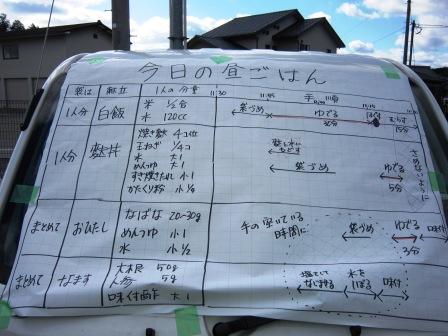 今日の昼ごはん
袋は 献立 1人の分量 11:30 11:45 手順 12:15
1人分 白飯
米 1/2合
水 120cc
袋づめ ゆでる 30分 むらす 15分
1人分 麩丼
焼き麩 4コ位
玉ねぎ 1/4コ
水 大1
めんつゆ 大1
すき焼たれ 小1
かたくり粉 小1/3
麩を水にもどす
袋づめ
ゆでる
5分
さめないように
まとめて おひたし
なばな 20~30g
めんつゆ 小1
水 小1/2
手の空いている
時間に
袋づめ ゆでる 3分 味付
まとめて なます
大根 50g
人参 5g
味くすめ酢 大1
水を
しぼる
味付